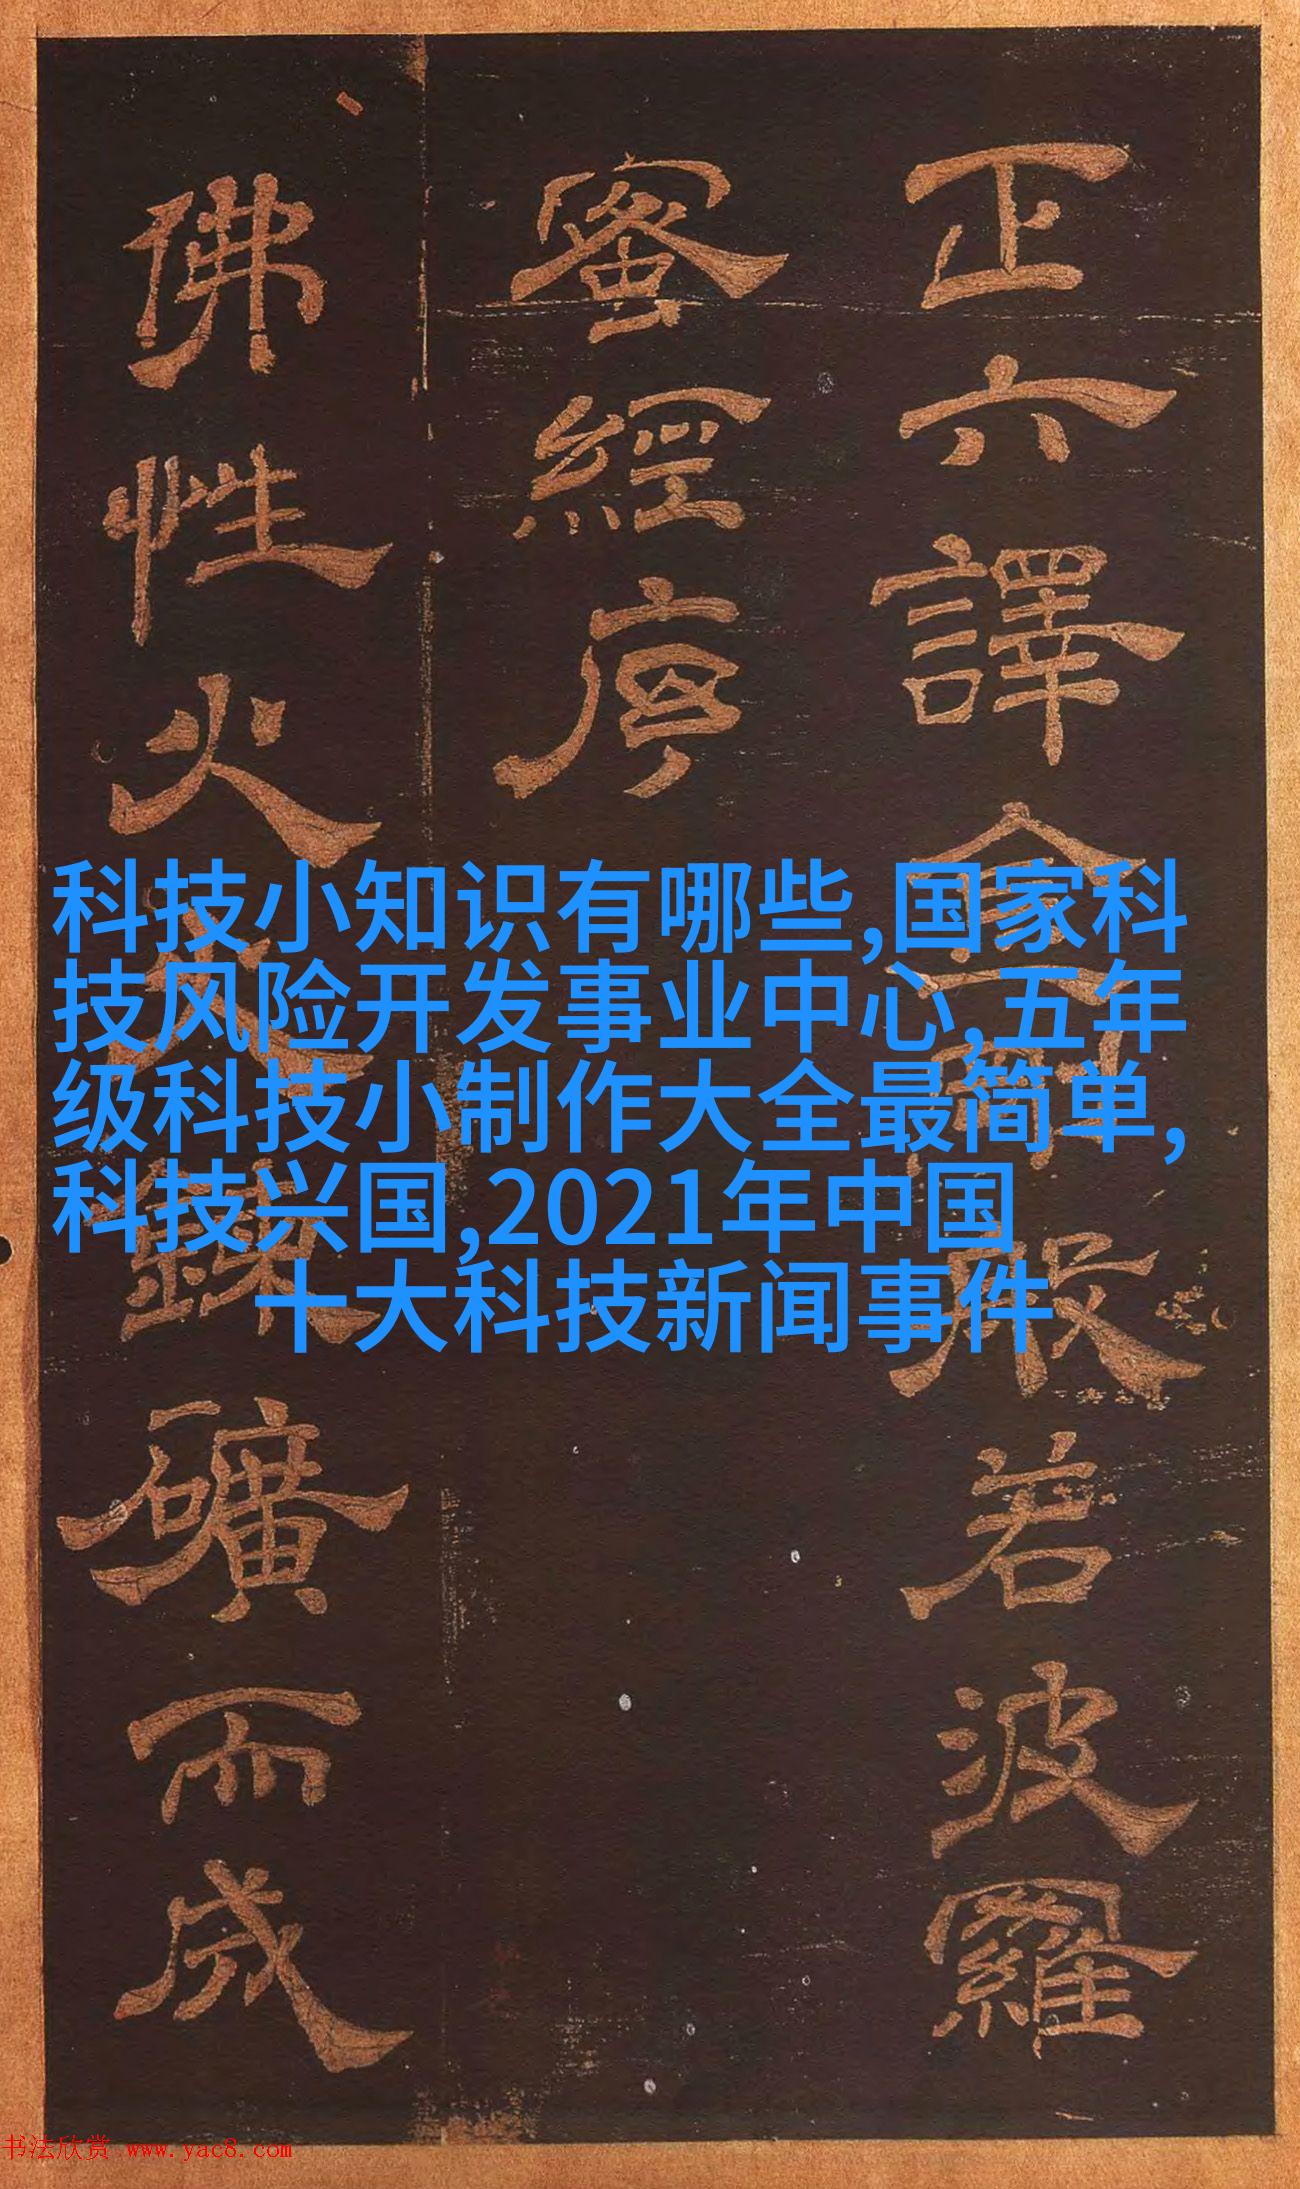 正六譯金剛般若波羅
蜜經序
佛性火鍊礦而成
科技小知识有哪些,国家科
技风险开发事业中心,五年
级科技小制作大全最简单,
科技兴国,2021年中国
十大科技新闻事件
书法欣赏 www.yac8.com